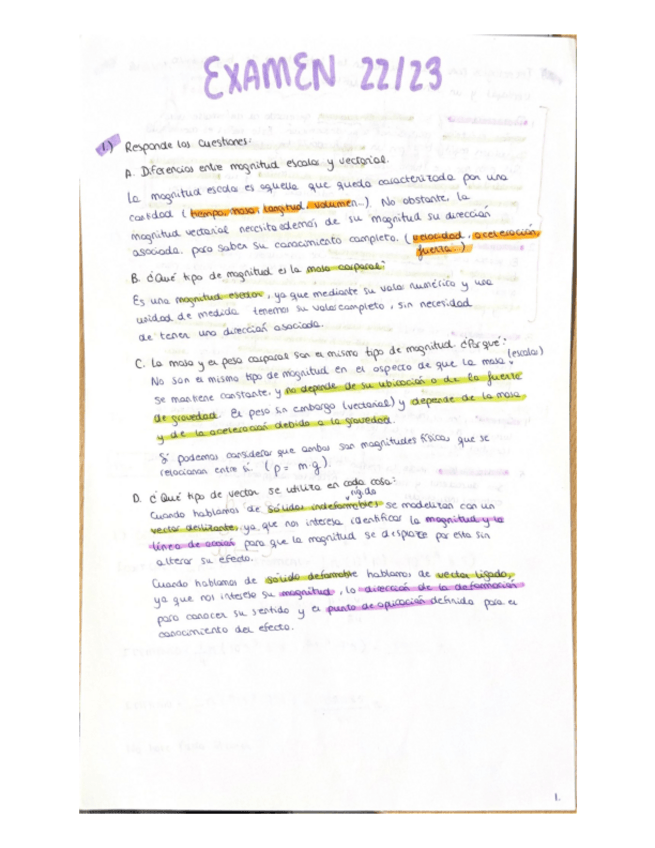 EXAMEN 22/23
1.) Responde las cuestiones:
A. Diferencias entre magnitud escalar y vectorial.
La magnitud escalar es aquella que queda caracterizada por una
cantidad (tiempo, masa, longitud, volumen...). No obstante, la
magnitud vectorial necesita además de su magnitud su dirección
asociada, para saber su conocimiento completo. (velocidad, aceleración,
fuerza...)
B. ¿Qué tipo de magnitud es la masa corporal?
Es una magnitud escalar, ya que mediante su valor numérico y una
unidad de medida tenemos su valor completo, sin necesidad
de tener una dirección asociada.
C. La masa y el peso corporal son el mismo tipo de magnitud. ¿Por qué?
No son el mismo tipo de magnitud en el aspecto de que la masa (escalar)
se mantiene constante, y no depende de su ubicación o de la fuerza
de gravedad. El peso sin embargo (vectorial) y depende de la masa
y de la aceleración debido a la gravedad.
Sí podemos considerar que ambas son magnitudes físicas que se
relacionan entre sí. (p = m·g).
D. ¿Qué tipo de vector se utiliza en cada caso?
Cuando hablamos de sólidos indeformables rígido se modelizan con un
vector deslizante, ya que nos interesa identificar la magnitud y la
línea de acción para que la magnitud se desplace por ella sin
alterar su efecto.
Cuando hablamos de sólido deformable hablamos de vector ligado,
ya que nos interesa su magnitud, la dirección de la deformación
para conocer su sentido y el punto de aplicación definido para el
conocimiento del efecto.
1.